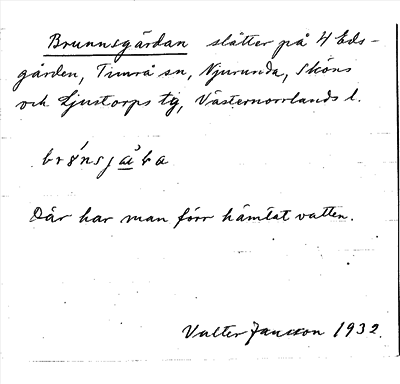 Brunnsgärdan slåtter på 4 Eds-
gården, Timrå sn, Njurunda, Sköns
och Ljustorps tg, Västernorrlands l.
Där har man förr hämtat vatten.
Valter Jansson 1932.